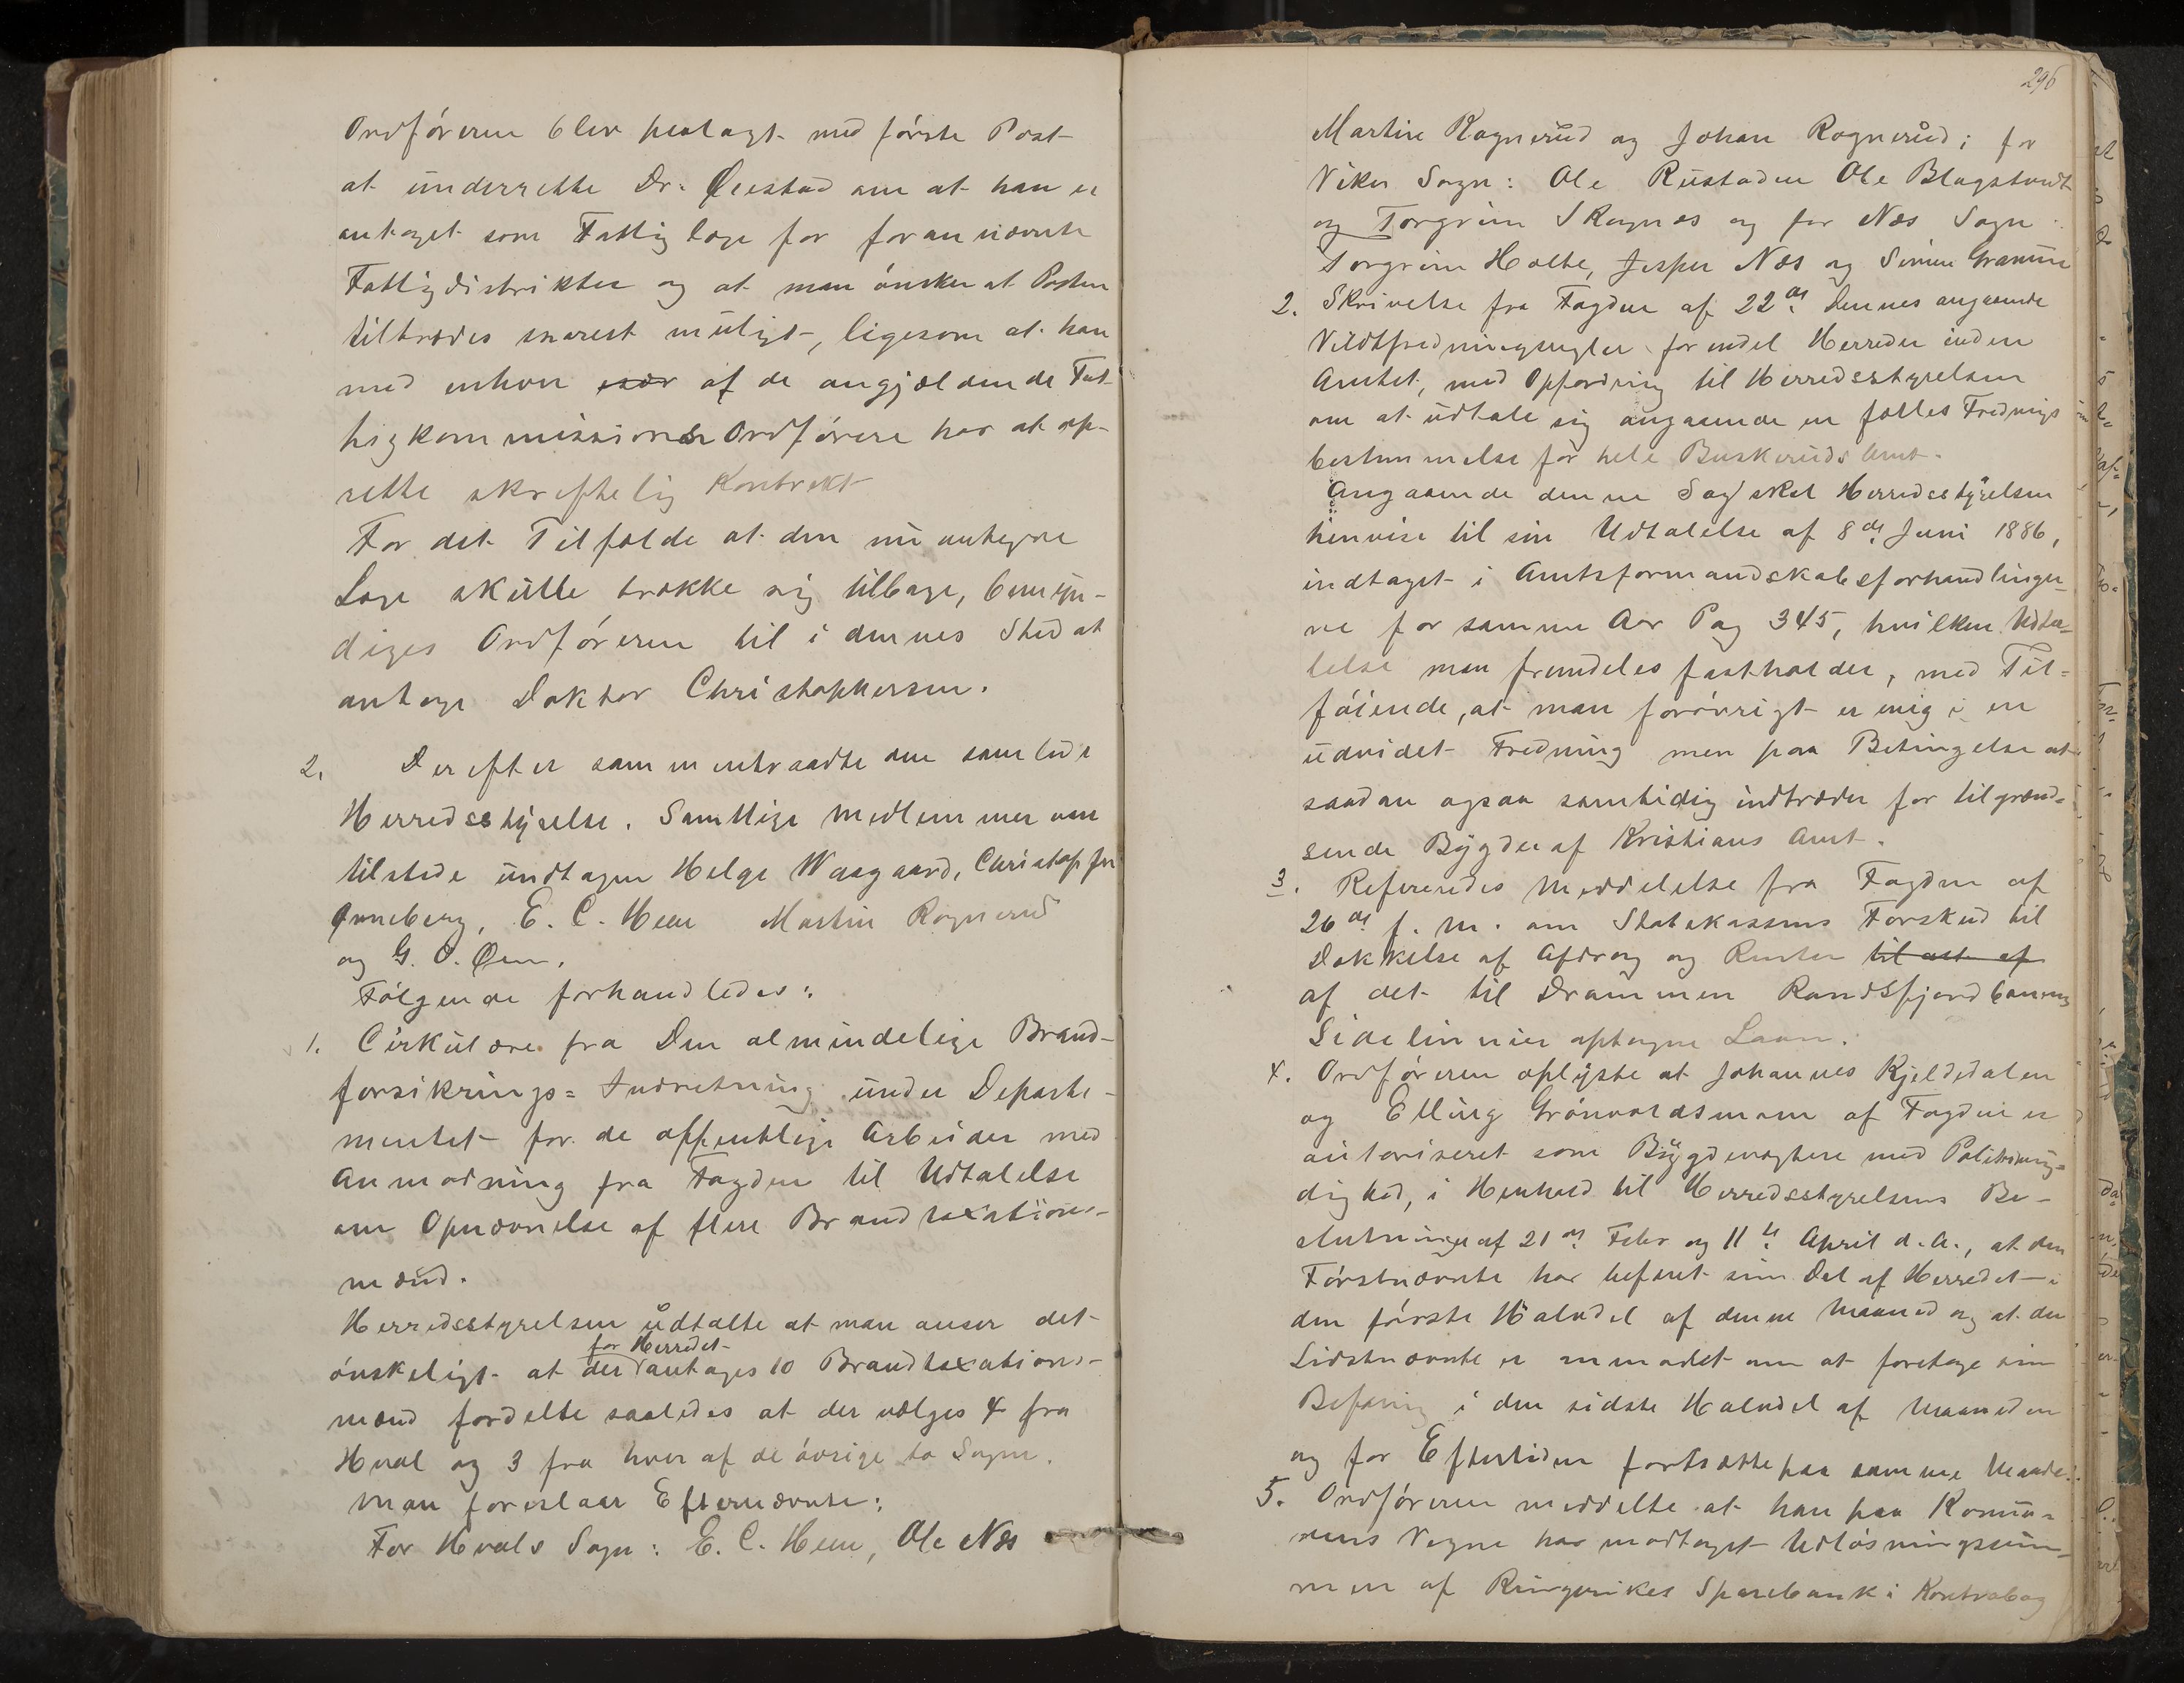 Ordføreren blev paalagt med første Post
at underrette Dr. Ørestad om at han er
antaget som Fattiglæge for forannævnte
Fattigdistrikter og at man ønsker at Posten
tiltrædes snarest muligt, ligesom at han
med enhver især af de angjældende Fat-
tigkommissioners Ordførere har at op-
rette skriftelig Kontrakt
For det Tilfælde at den nu antagne
Læge skulle trække sig tilbage, bemyn-
diges Ordføreren til i dennes Sted at
antage Doktor Christophersen.
2. Derefter sammentraadte den samlede
Herredsstyrelse. Samtlige Medlemmer var
tilstede undtagen Helge Waagaard, Christoffer
Enneberg, E. C. Heen Martin Rognerud
og G. O. Øen.
Følgende forhandledes:
1. Cirkulære fra Den almindelige Brand-
forsikrings-Indretning under Departe-
mentet for de offentlige Arbeider med
Anmodning fra Fogden til Udtalelse
om Opnævnelse af flere Brandtaxations-
mænd.
Herredsstyrelsen udtalte at man anser det
for Herredet
ønskeligt at der antages 10 Brandtaxations-
mænd fordelte saaledes at der vælges 4 fra
Hval og 3 fra hver af de øvrige to Sogne.
Man foreslaar Efternævnte:
For Hvals Sogn: E. C. Heen, Ole Næs
296
Martin Rognerud og Johan Rognerud; for
Viker Sogn: Ole Rustaden Ole Blagstvedt
og Torgrim Skagnæs og for Næs Sogn
Torgrim Holte, Jesper Næs og Simen Gramm
2. Skrivelse fra Fogden af 22de dennes angaaende
Vildtfredningsregler for endel Herreder inden
Amtet, med Opfordring til Herredsstyrelsen
om at udtale sig angaaende en fælles Frednings
bestemmelse for hele Buskeruds Amt.
Angaaende denne Sag skal Herredsstyrelsen
henvise til sin Udtalelse af 8de Juni 1886,
indtaget i Amtsformandskabsforhandlinger-
ne for samme Aar Pag 345, hvilken Udta-
lelse man fremdeles fastholder, med Til-
føiende, at man forøvrigt er enig i en
udvidet Fredning men paa Betingelse at
saadan ogsaa samtidig indtræder for tilgrænd-
sende Bygder af Kristians Amt.
3. Refereredes Meddelelse fra Fogden af
26de f. M. om Statskassens Forskud til
Dækkelse af Afdrag og Renter til at af
af det til Drammen Randsfjordbanens
Sidelinnier optagne Laan.
4. Ordføreren oplyste at Johannes Kjeldedalen
og Elling Grønvoldsmoen af Fogden er
autoriseret som Bygdevægtere med Politimyn-
dighed, i Henhold til Herredsstyrelsens Be-
slutninger af 21de Febr og 11te April d. A., at den
Førstnævnte har befaret sin Del af Herredet i
den første Halvdel af denne Maaned og at den
Sidstnævnte er anmodet om at foretage sin
Befaring i den sidste Halvdel af Maaneden
og for Eftertiden fortsætte paa samme Maade.
5. Ordføreren meddelte at han paa Komu-
nens Vegne har modtaget Udløsningssum-
men af Ringerikes Sparebank i Kontrabog